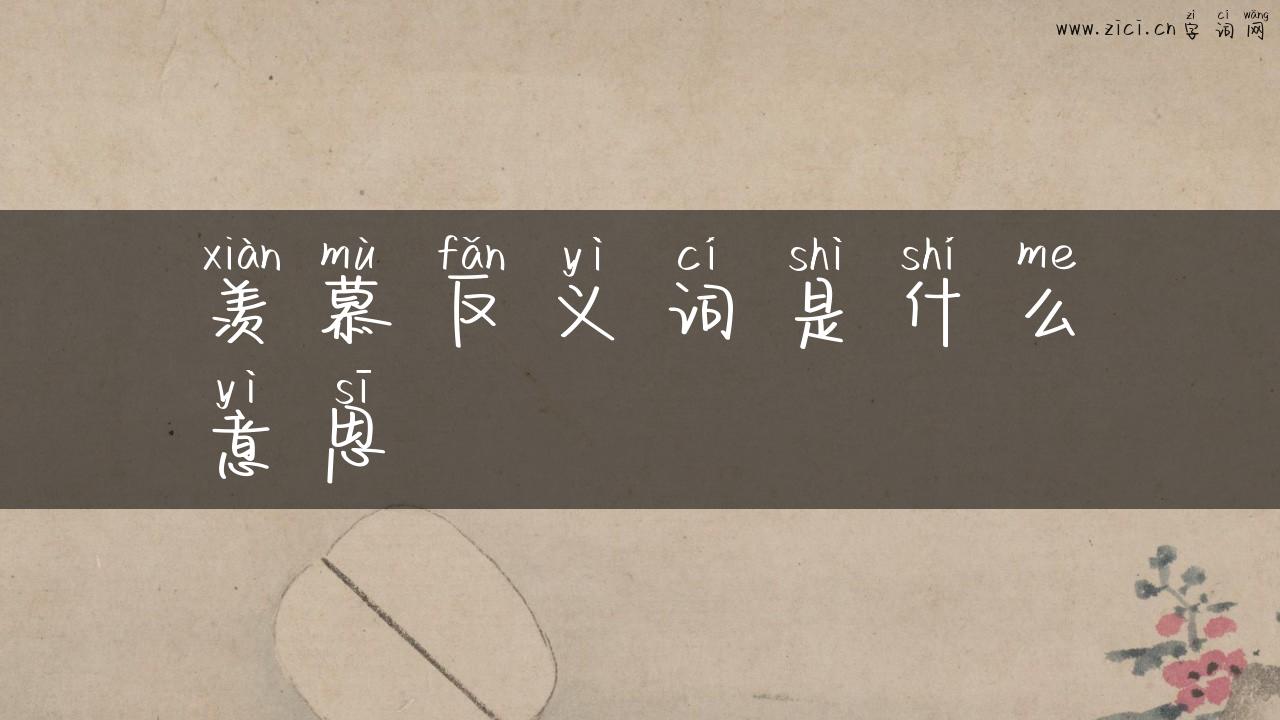 zì cí wǎng
www.zici.cn 字词网
xiàn mù fǎn yì cí shì shí me
羡慕反义词是什么
yì sī
意思